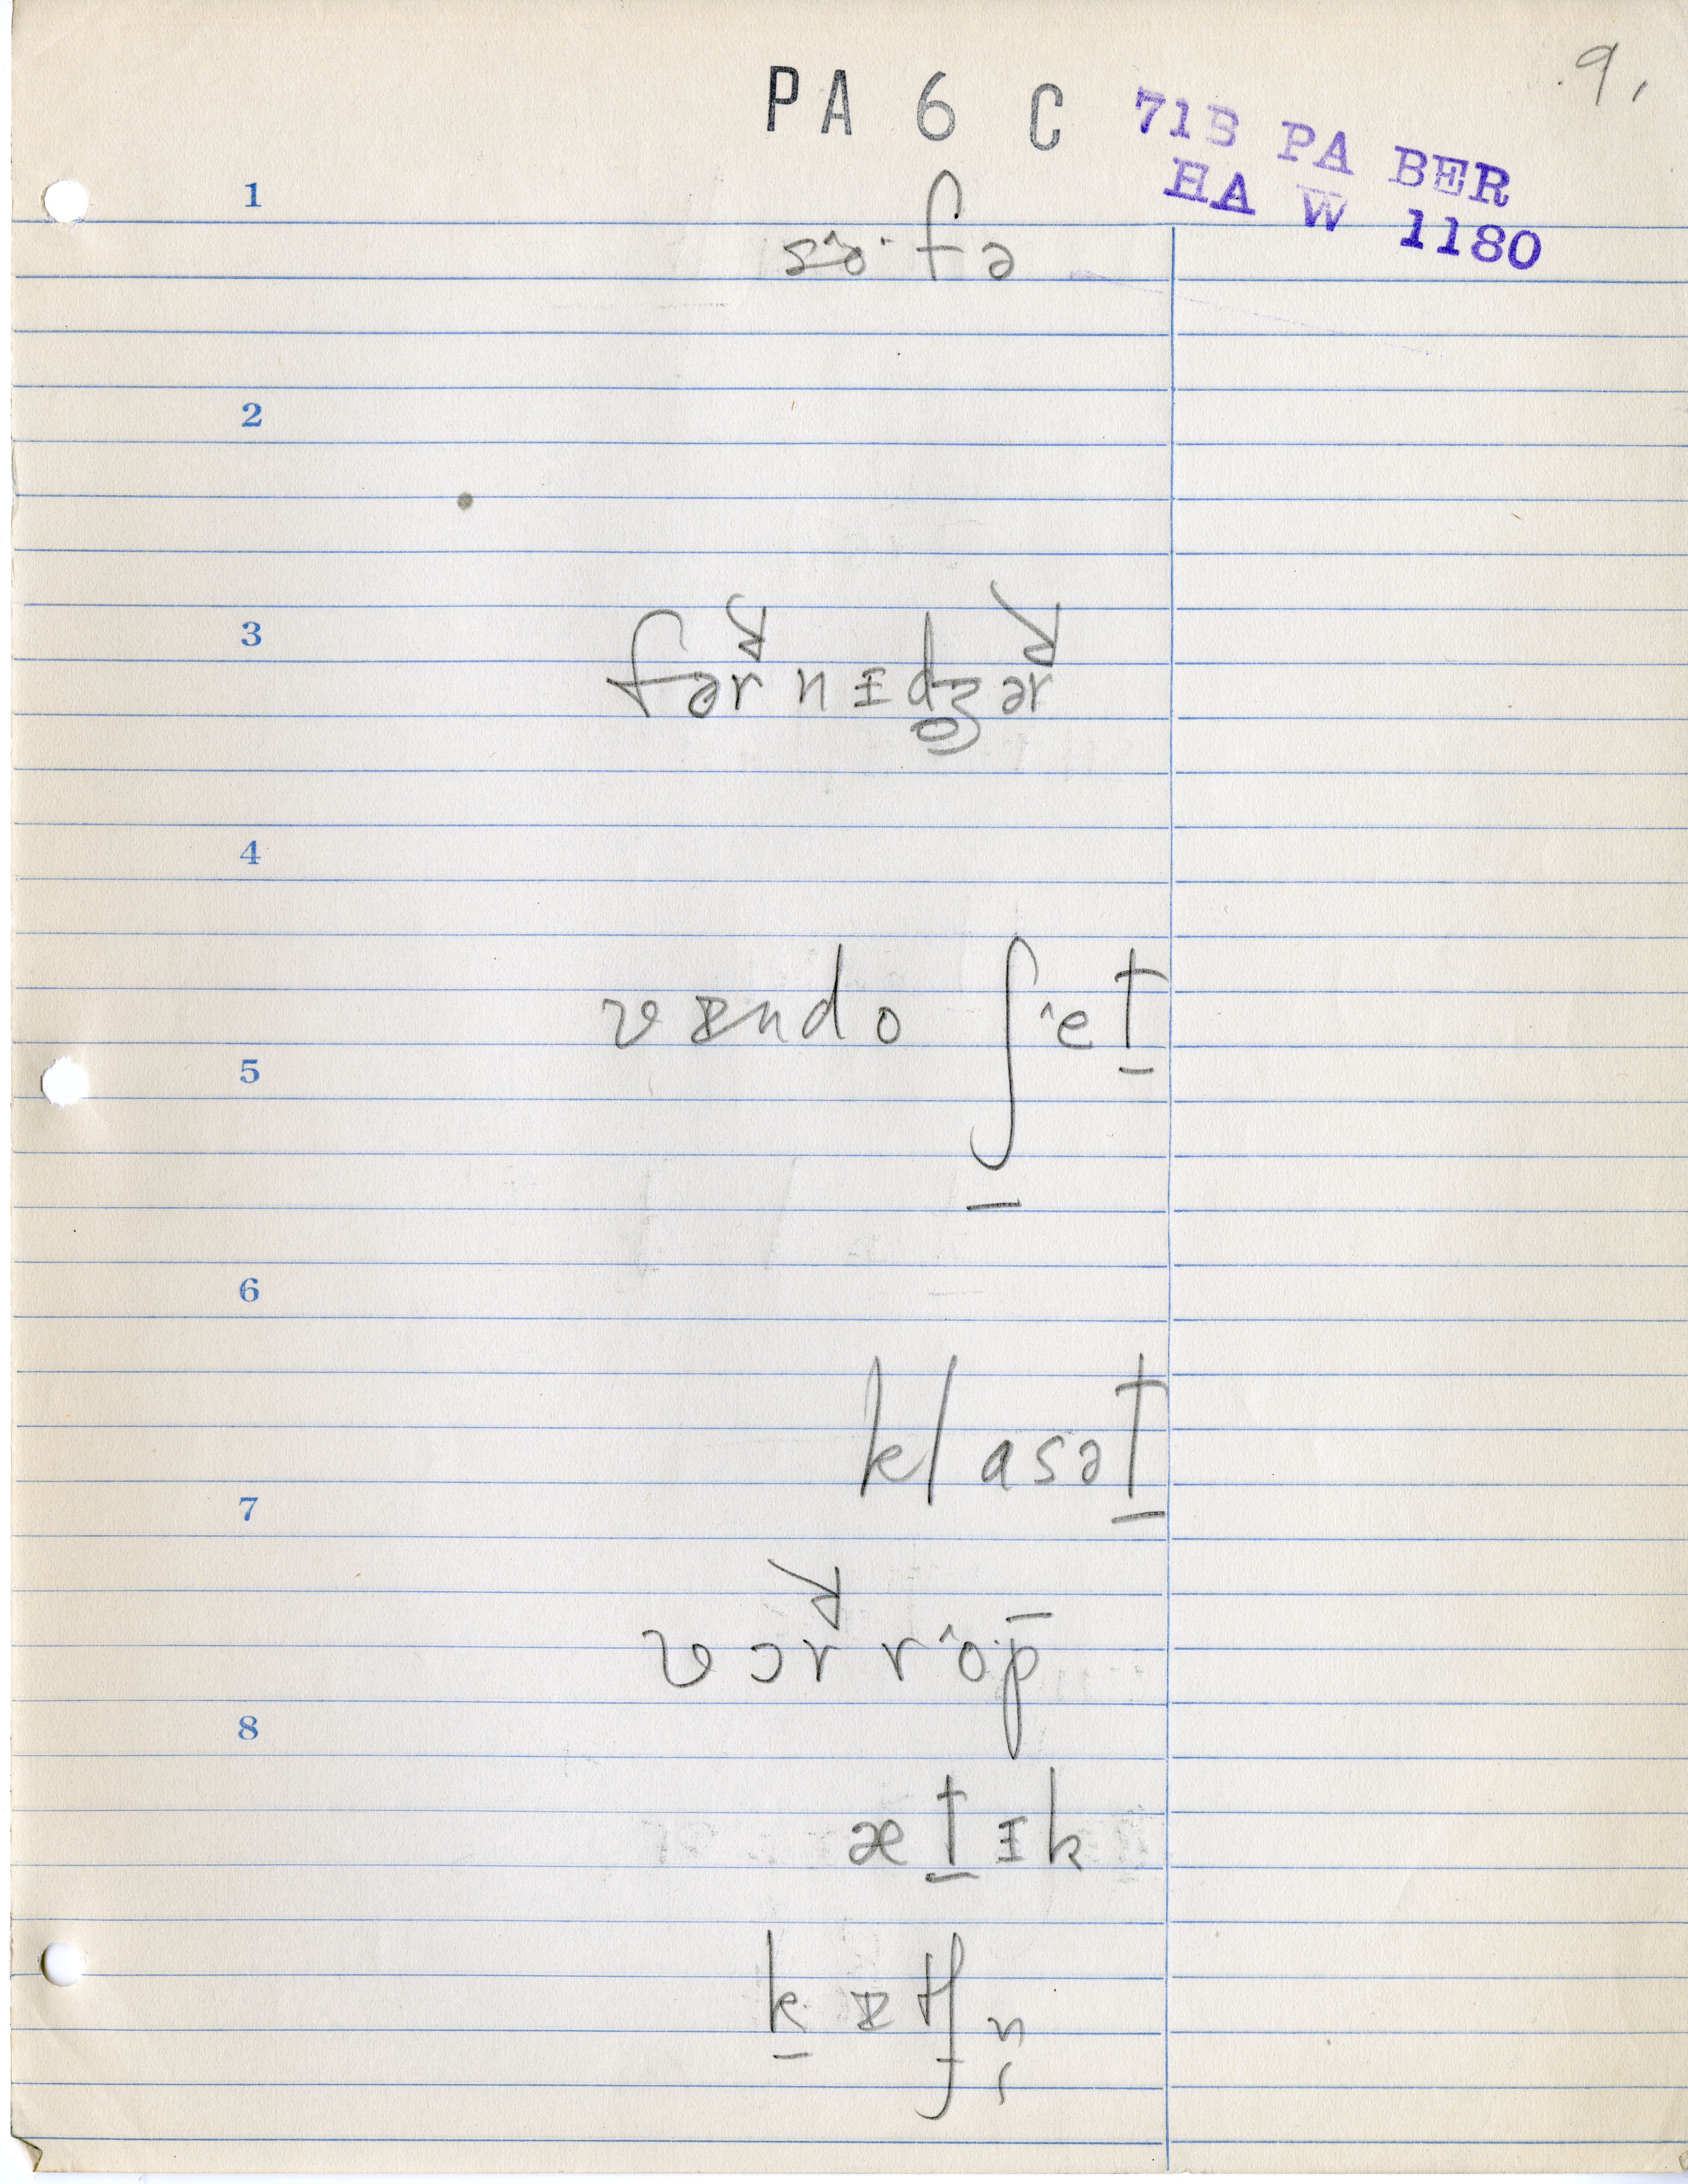 9.
PA 6 C
71B PA BER
HA W 1180
1
so^·fə
2
3
fərnɪdʒər
4
vɪndo ʃ^et̠
5
6
klasət̠
7
vɔr r^o·p̄
8
æt̠ɪk
k̠ɪtʃn̩